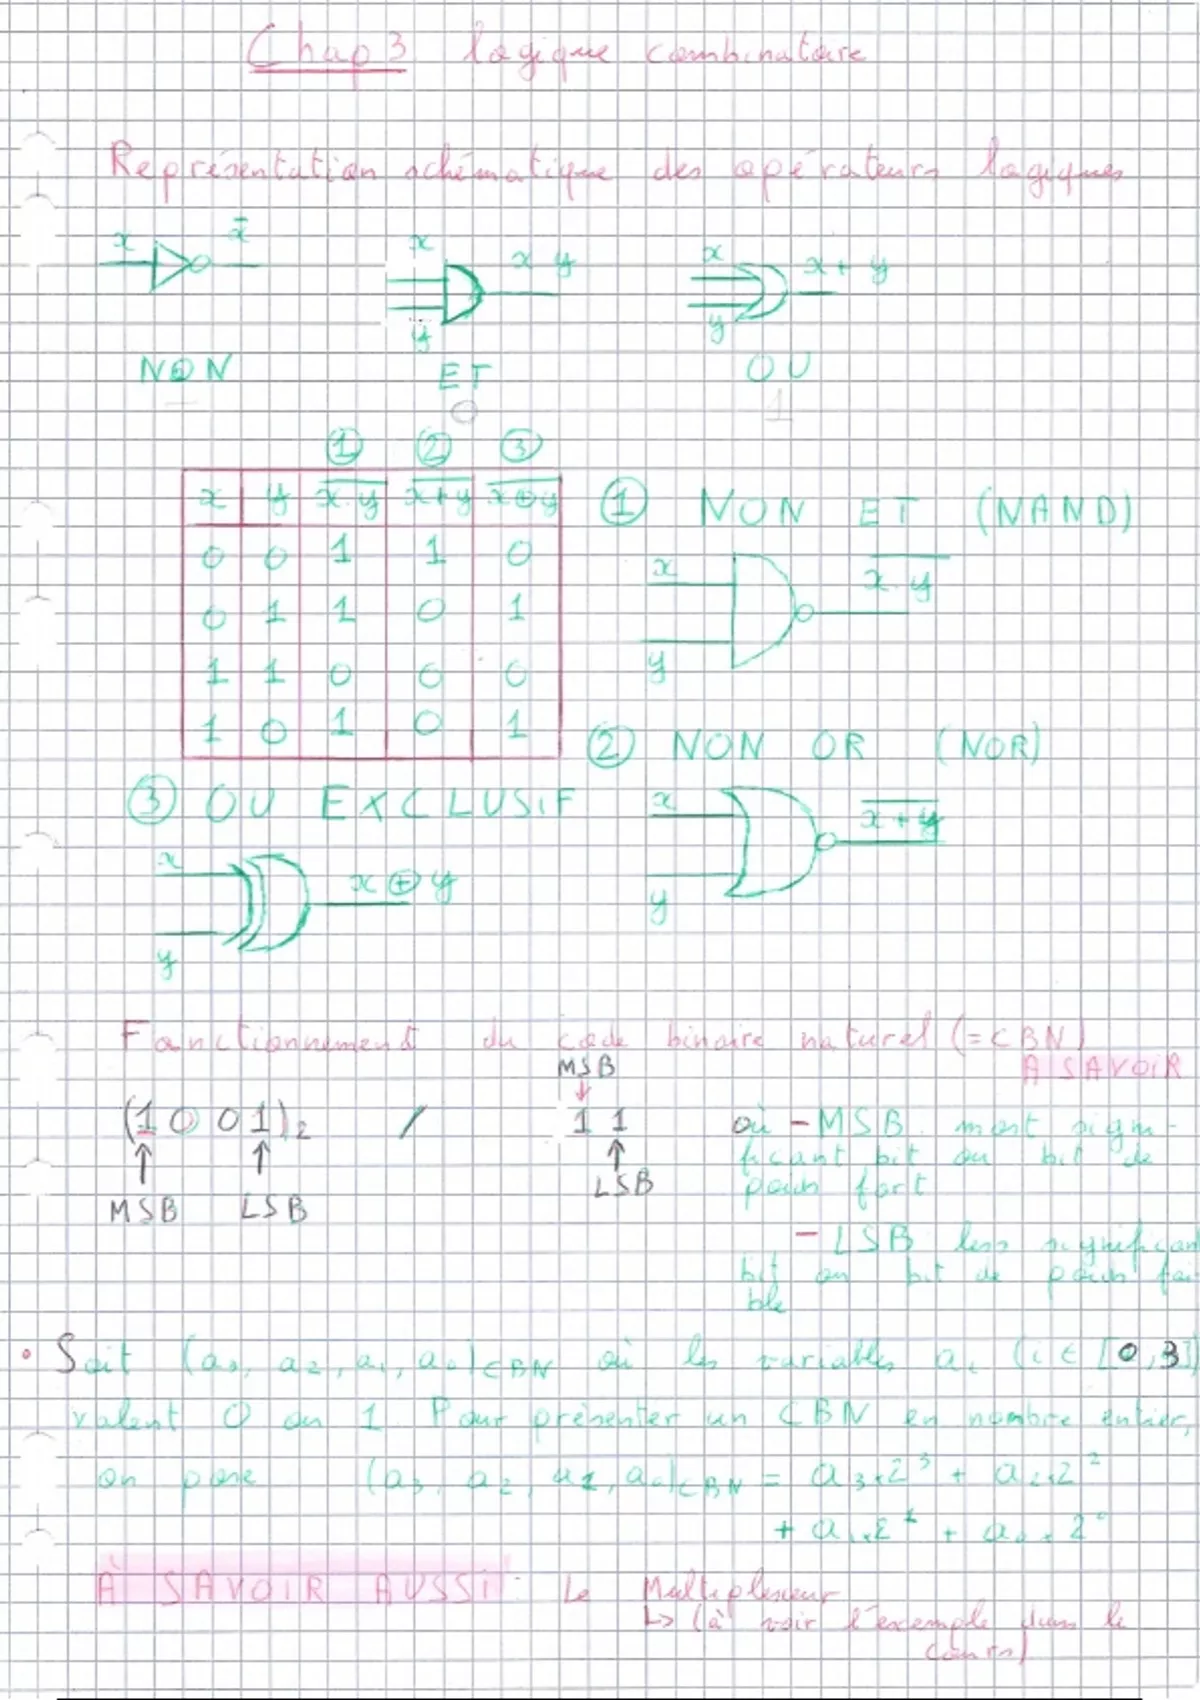 Chap 3 logique combinatoire
Représentation schématique des opérateurs logiques
x x̅ x x y x x + y
y y
NON ET OU
0 1
① ② ③
x y x̅.̅y̅ x̅+̅y̅ x̅⊕̅y̅
0 0 1 1 0
0 1 1 0 1
1 1 0 0 0
1 0 1 0 1
① NON ET (NAND)
x x̅.̅y̅
y
② NON OR (NOR)
x x̅+̅y̅
y
③ OU EXCLUSIF
x x ⊕ y
y
Fonctionnement du code binaire naturel (= CBN)
À SAVOIR
MSB
↓
(1001)₂ / 11
↑ ↑ ↑
MSB LSB LSB
où - MSB most signi-
ficant bit ou bit de
poids fort
- LSB less significan
bit ou bit de poids fai
ble
• Soit (a₃, a₂, a₁, a₀)CBN où les variables aᵢ (i ∈ [0,3]
valent 0 ou 1. Pour présenter un CBN en nombre entier,
on pose (a₃, a₂, a₁, a₀)CBN = a₃.2³ + a₂.2²
+ a₁.2¹ + a₀.2⁰
À SAVOIR AUSSI : Le Multiplexeur
↳ (à voir l'exemple dans le
cours)